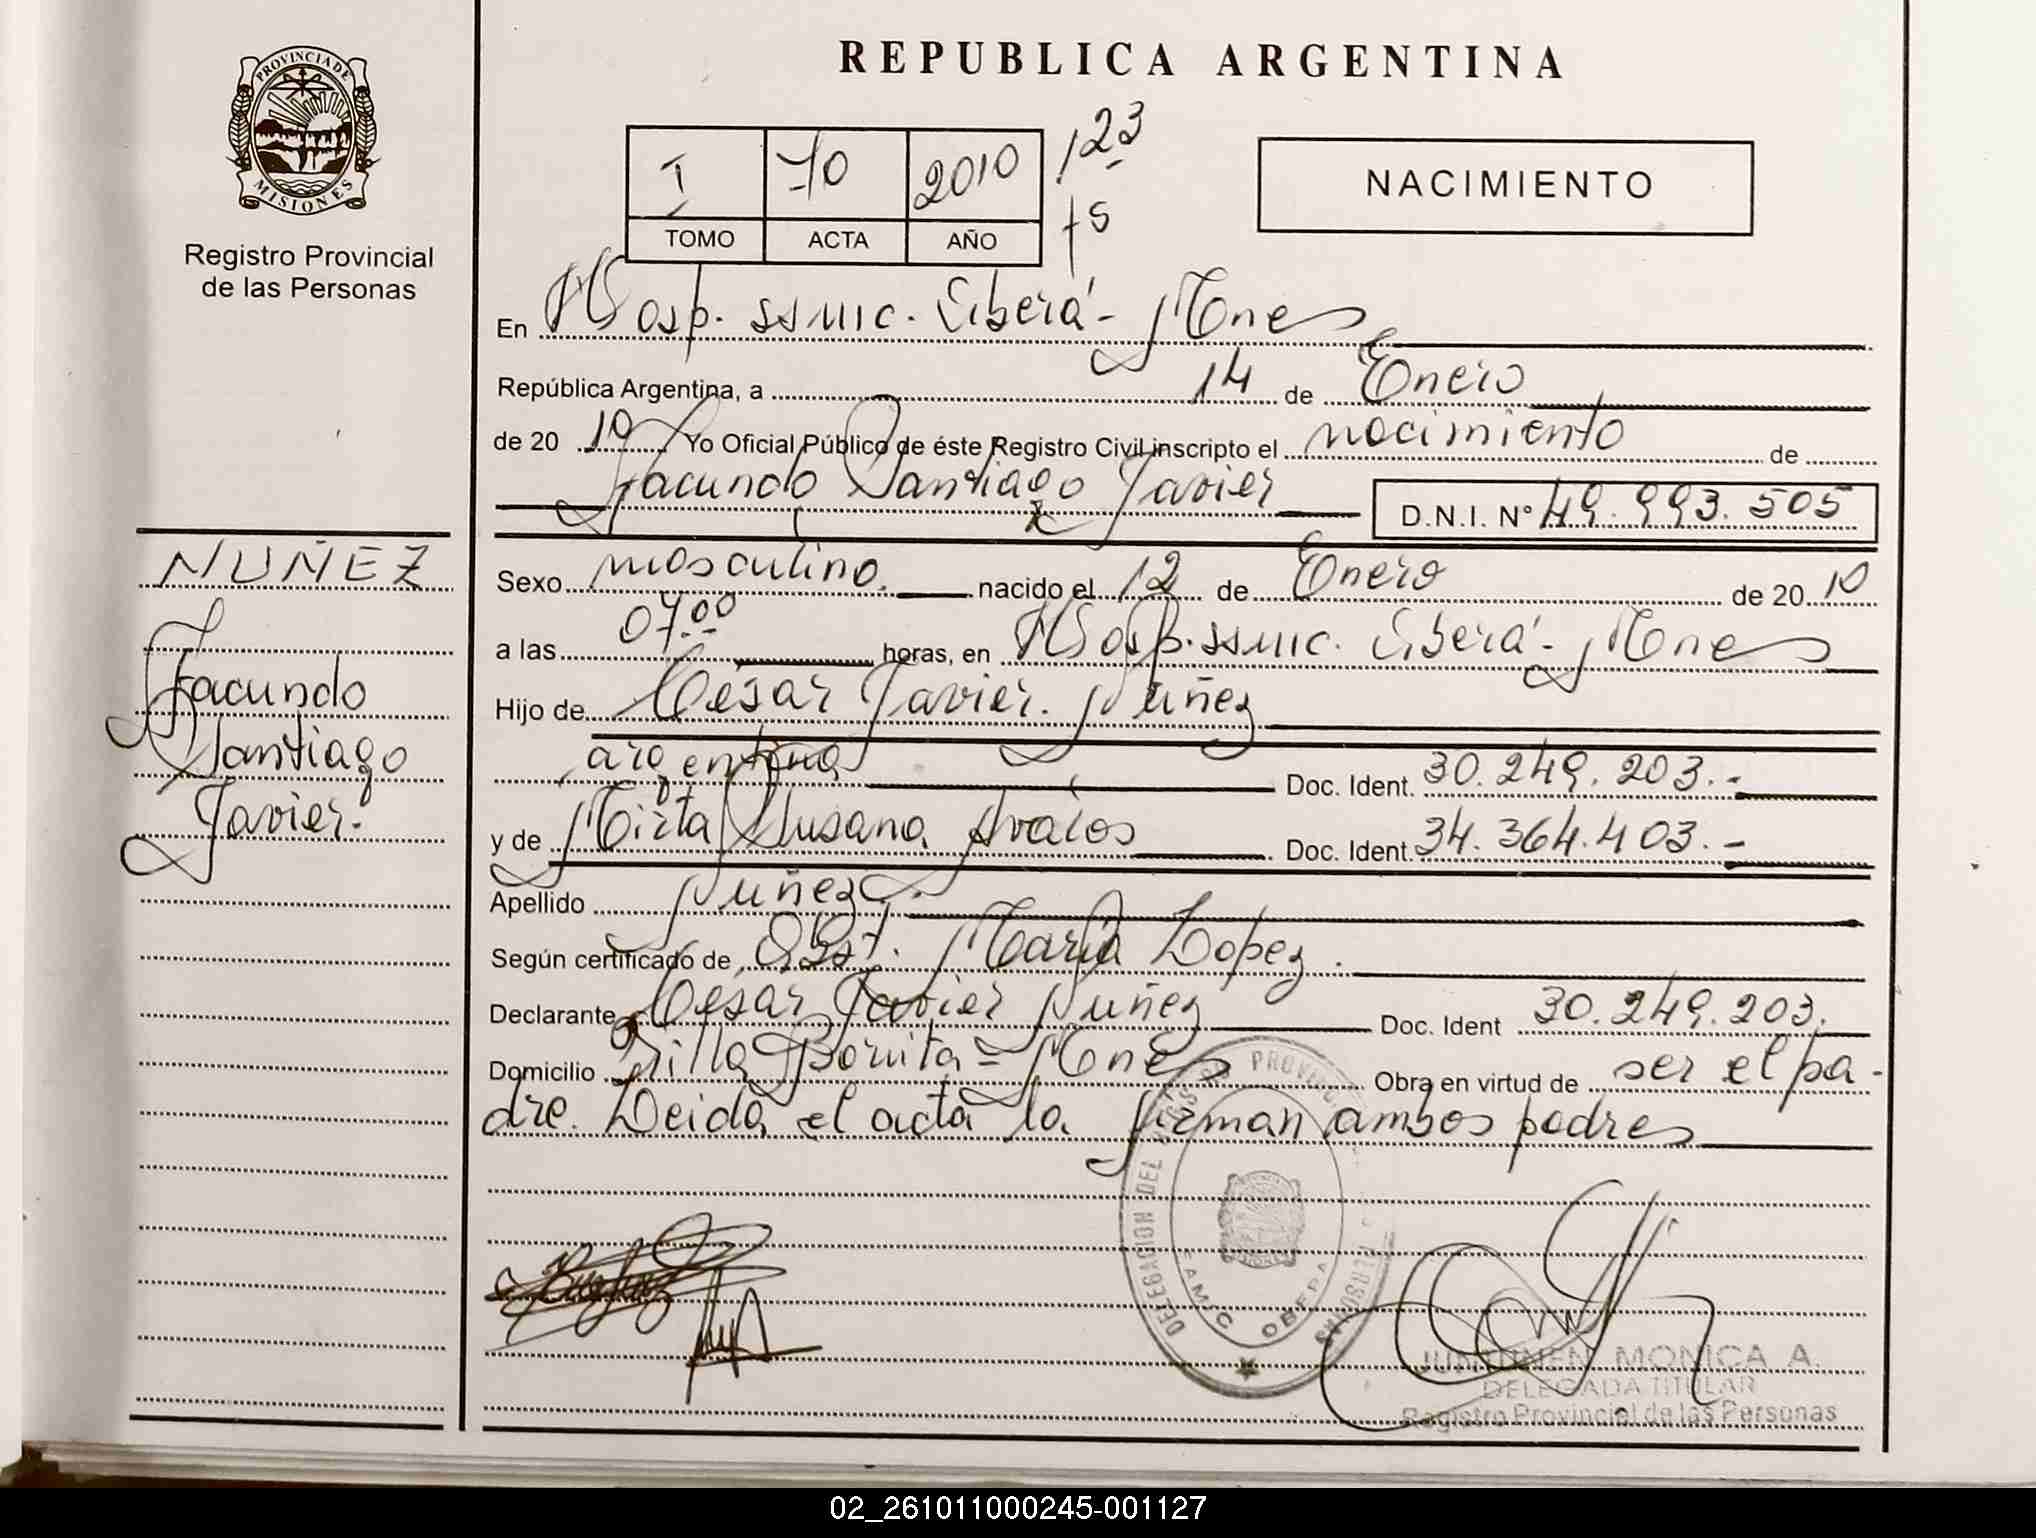 PROVINCIA DE
MISIONES
Registro Provincial
de las Personas
REPUBLICA ARGENTINA
I 70 2010 123
TOMO ACTA AÑO
NACIMIENTO
En Hosp. SSMIC. Oberá - Mnes
República Argentina, a 14 de Enero
de 20 10 Yo Oficial Público de éste Registro Civil inscripto el nacimiento de
Facundo Santiago Javier D.N.I. N° 49.993.505
NUÑEZ
Facundo
Santiago
Javier.
Sexo masculino. nacido el 12 de Enero de 20 10
a las 07.00 horas, en Hosp. SSMIC. Oberá - Mnes
Hijo de César Javier Nuñez
argentina Doc. Ident. 30.249.203.-
y de Mirta Susana Avalos Doc. Ident. 34.364.403.-
Apellido Nuñez.
Según certificado de Obst. María Lopez.
Declarante César Javier Nuñez Doc. Ident 30.249.203.
Domicilio Villa Bonita = Mnes Obra en virtud de ser el pa-
dre. Leida el acta la firman ambos padres
DELEGACION DEL REGISTRO PROVINCIAL PERSONAS
SAMIC OBERA
MONICA A.
DELEGADA TITULAR
Registro Provincial de las Personas
02_261011000245-001127